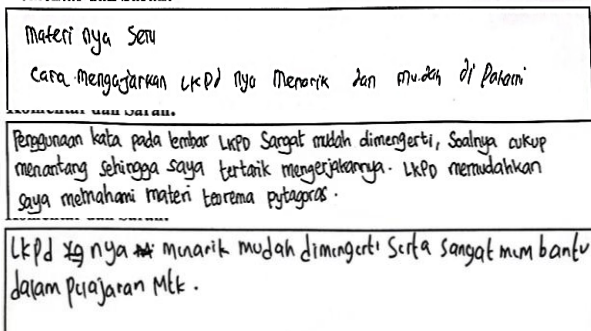 Materi nya Seru
Cara mengajarkan LKPD nya Menarik dan mudah di Pahami
Komentar dan Saran.
Penggunaan kata pada lembar LKPD Sangat mudah dimengerti, Soalnya cukup
menantang sehingga saya tertarik mengerjakannya. LKPD memudahkan
saya memahami materi teorema pytagoras.
LKPd yg nya munarik mudah dimingerti Serta sangat mumbantu
dalam pelajaran Mtk.